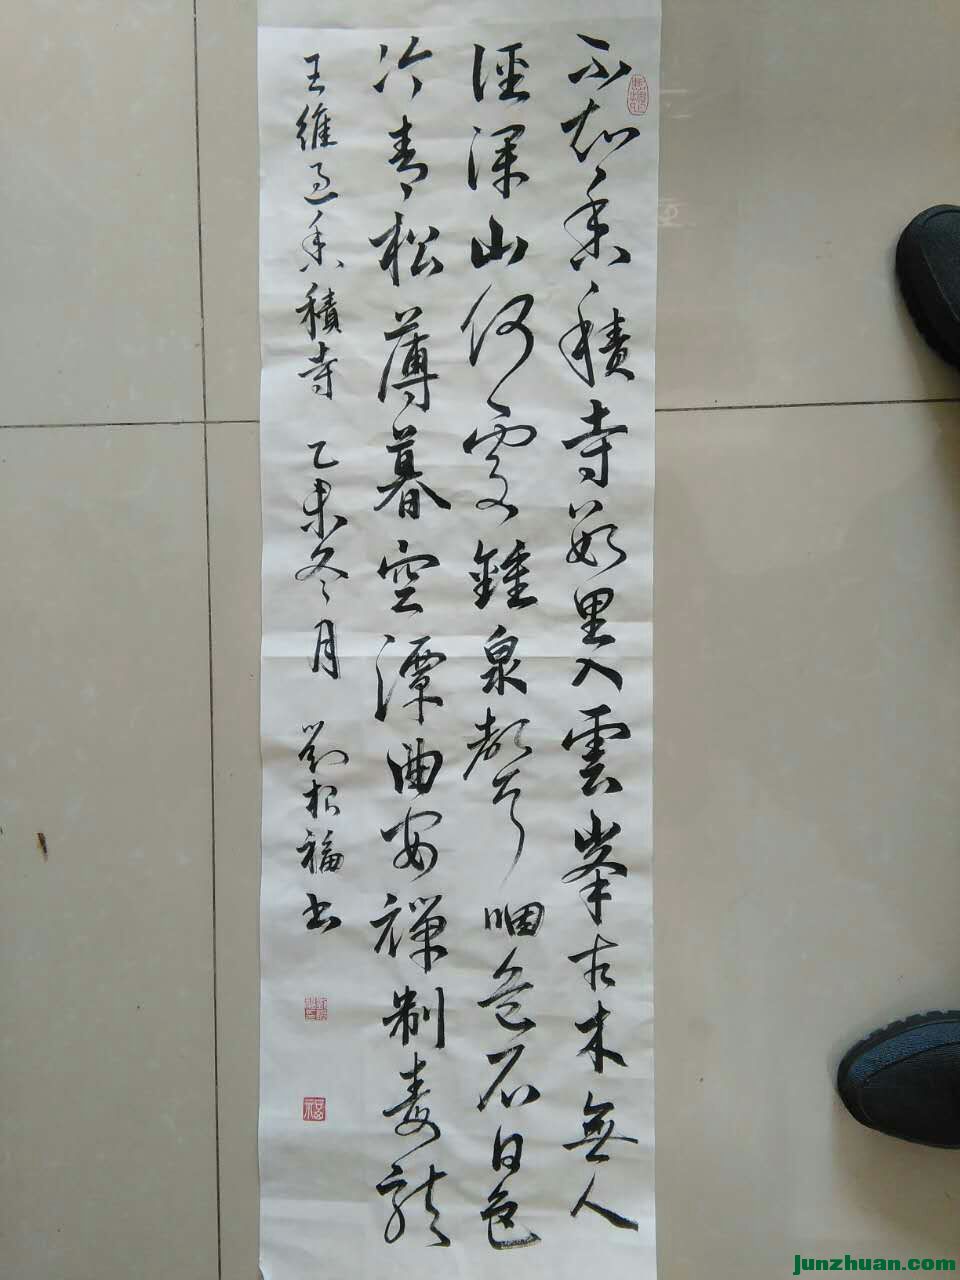 不知香積寺數里入雲峯古木無人
徑深山何處鍾泉聲咽危石日色
冷青松薄暮空潭曲安禪制毒龍
王維過香積寺 乙未冬月 劉根福書
福
junzhuan.com